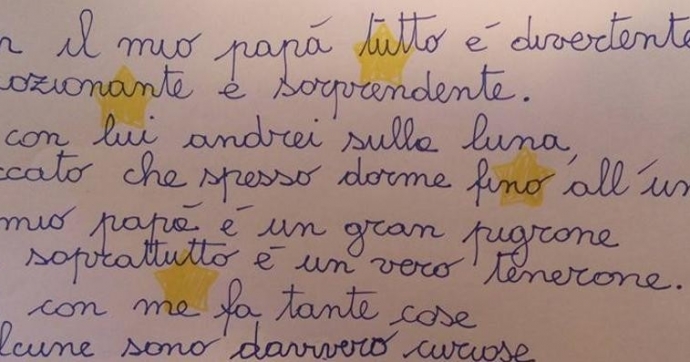 n il mio papá tutto é divertente
ozionante e sorprendente.
con lui andrei sulla luna,
ccato che spesso dorme fino all'un
mio papá é un gran pigrone
soprattutto é un vero tenerone.
con me fa tante cose
lcune sono davvero curiose